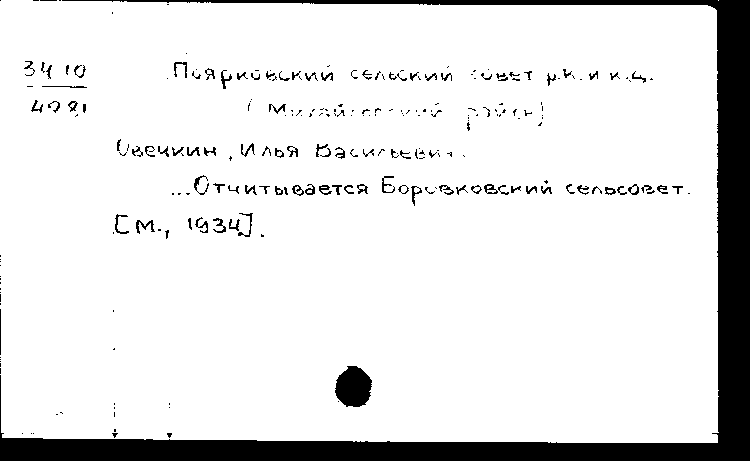 3410
4081
Поярковский сельский совет р.к. и к.д.
(Михайловский район)
Овечкин, Илья Васильевич.
...Отчитывается Боровковский сельсовет.
[М., 1934].